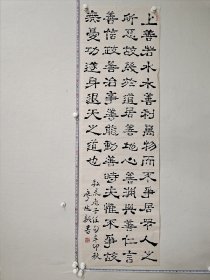 上善若水水善利萬物而不爭居眾人之
所惡故幾於道居善地心善淵與善仁言
善信政善治事善能動善時夫唯不爭故
無憂功遂身退天之道也
老子
卯秋
書